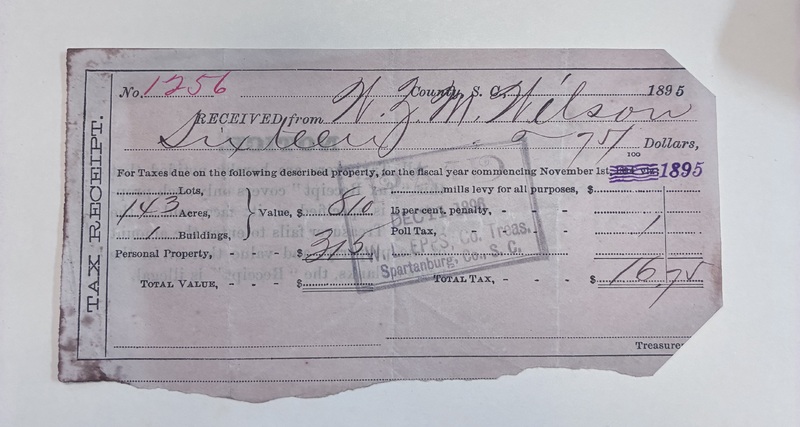 TAX RECEIPT.
No. 1256 County, S. C., 1895
RECEIVED from W. Z. M. Wilson
Sixteen 75/100 Dollars,
For Taxes due on the following described property, for the fiscal year commencing November 1st, 1895
Lots, mills levy for all purposes, $
143 Acres, Value, $ 810 15 per cent. penalty, - - -
1 Buildings, Poll Tax, - - - 1
Personal Property, - - - $ 315
TOTAL VALUE, - - - $ TOTAL TAX, - - - $ 16,75
Treasurer
DEC 1896
Co. Treas.
Spartanburg, Co., S. C.